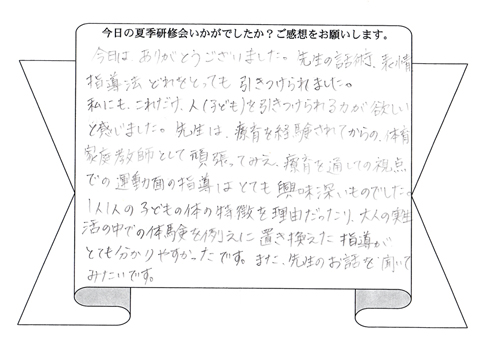 今日の夏季研修会いかがでしたか?ご感想をお願いします。
今日は、ありがとうございました。先生の話術、表情
指導法どれをとっても引きつけられました。
私にも、これだけ、人(子ども)を引きつけられる力が欲しい
と感じました。先生は、療育を経験されてからの、体育
家庭教師として頑張ってみえ、療育を通しての視点
での運動面の指導はとても興味深いものでした。
1人1人の子どもの体の特徴を理由だったり、大人の実生
活の中での体験を例えに置き換えた指導が
とても分かりやすかったです。また、先生のお話を聞いて
みたいです。